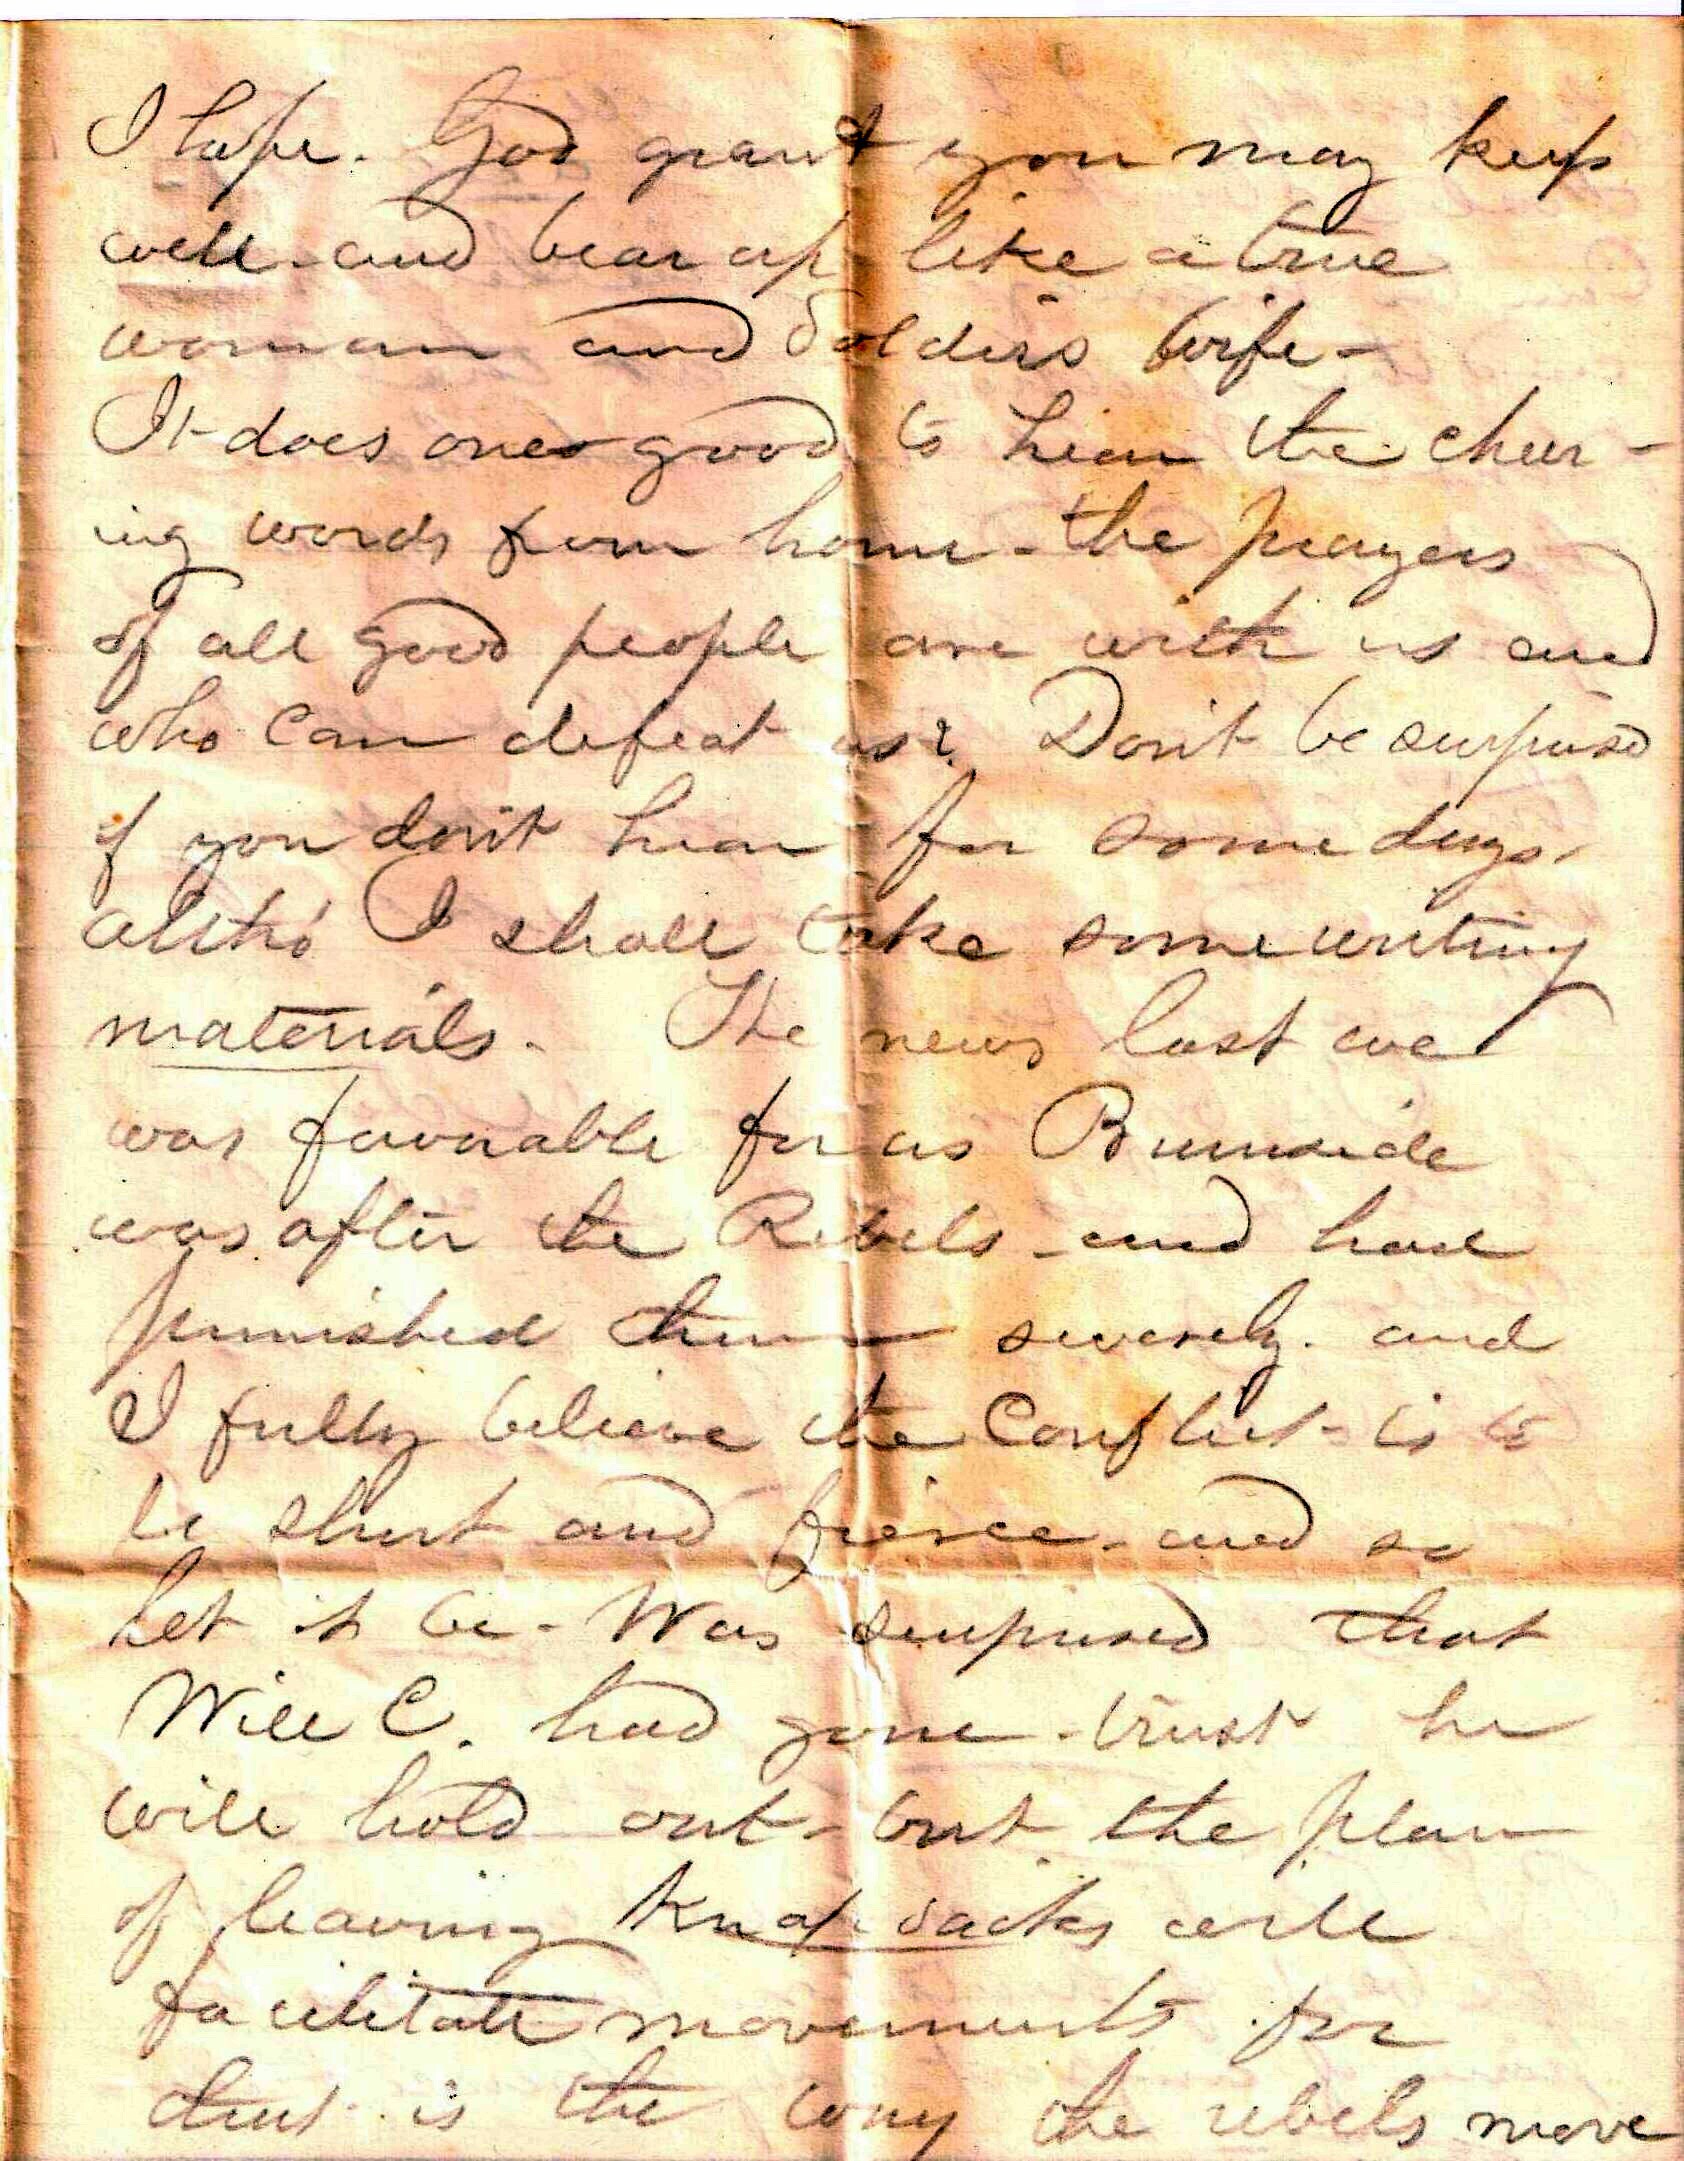 I hope. God grant you may keep
well - and bear up like a true
woman and Soldiers Wife -
It does one good to hear the cheer -
ing words from home - the prayers
of all good people are with us and
who can defeat us? Don't be surprised
if you don't hear for some days -
altho' I shall take some writing
materials. The news last eve
was favorable for us Burnside
was after the Rebels - and had
punished them severely. and
I fully believe the Conflict is to
be short and fierce - and so
let it be - Was surprised that
Will C. had gone - trust he
will hold out - but the plan
of leaving Knapsacks will
facilitate movements for
that is the way the rebels move